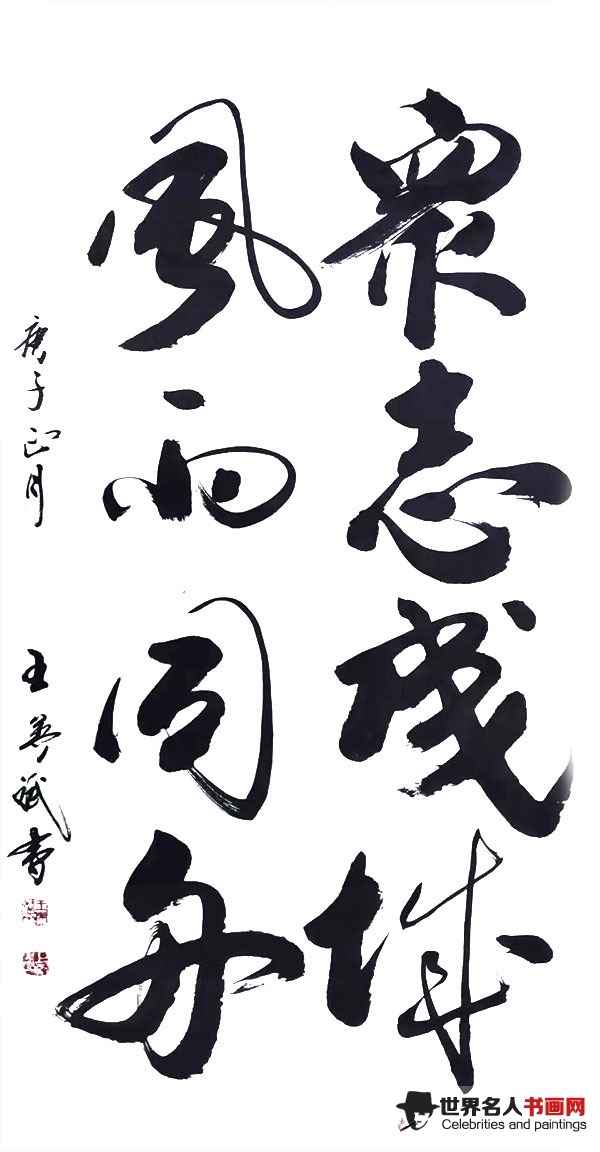 眾志成城
風雨同舟
庚子正月
王夢斌書
世界名人书画网
Celebrities and paintings